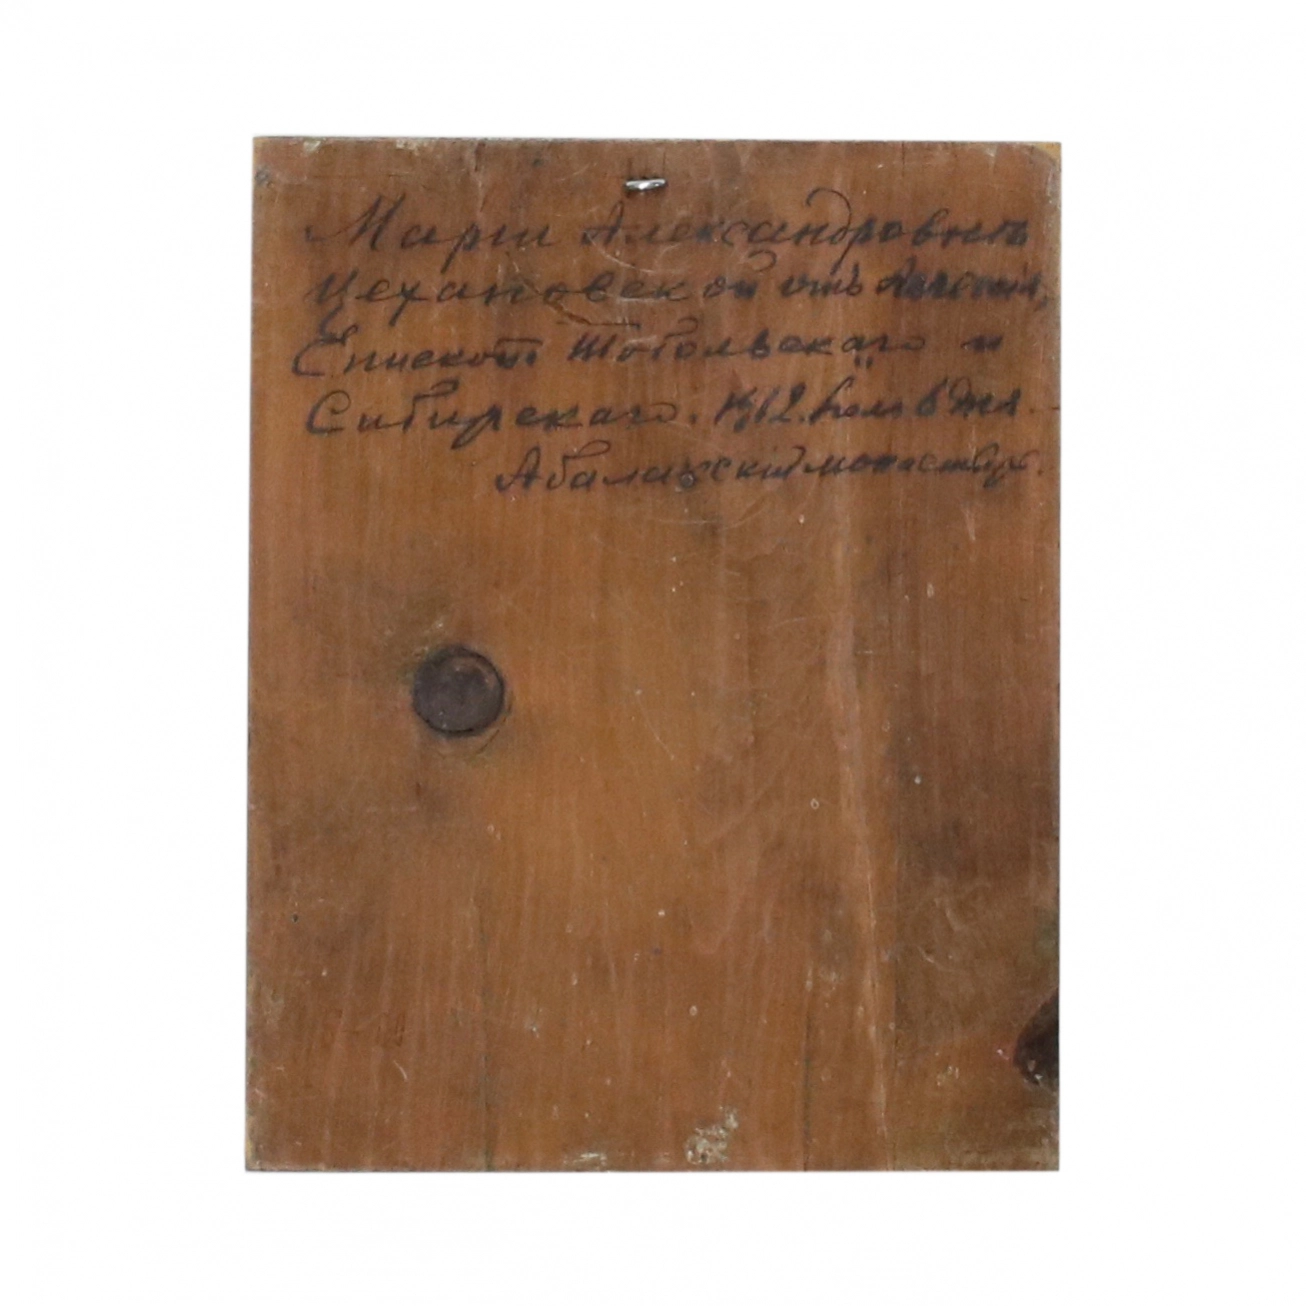 Маріи Александровнѣ
Цехановской отъ Алексія,
Епископа Тобольскаго и
Сибирскаго. 1912. 6 дня.
Абалакскій монастырь.